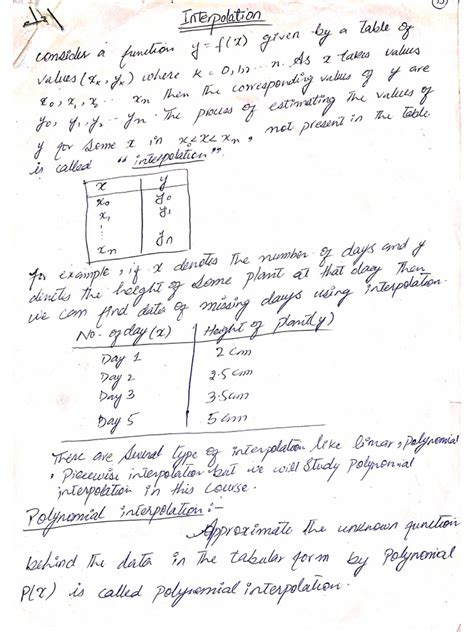 Interpolation
consider a function y=f(x) given by a Table of
values (xₖ, yₖ) where k = 0,1,... n. As x takes values
x₀, x₁, x₂ ... xₙ then the corresponding values of y are
y₀, y₁, y₂ ... yₙ. The process of estimating the values of
y for some x in x₀<x<xₙ, not present in the table
is called "interpolation".
x y
x₀ y₀
x₁ y₁
⋮
xₙ yₙ
for example, if x denotes the number of days and y
denotes the height of some plant at that day then
we can find data of missing days using interpolation.
No. of day (x) Height of plant(y)
Day 1 2 cm
Day 2 2.5 cm
Day 3 3.5 cm
Day 5 5 cm
There are several type of interpolation like linear, Polynomial
, Piecewise interpolation but we will study Polynomial
interpolation in this course.
Polynomial interpolation:-
Approximate the unknown function
behind the data in the tabular form by Polynomial
P(x) is called polynomial interpolation.